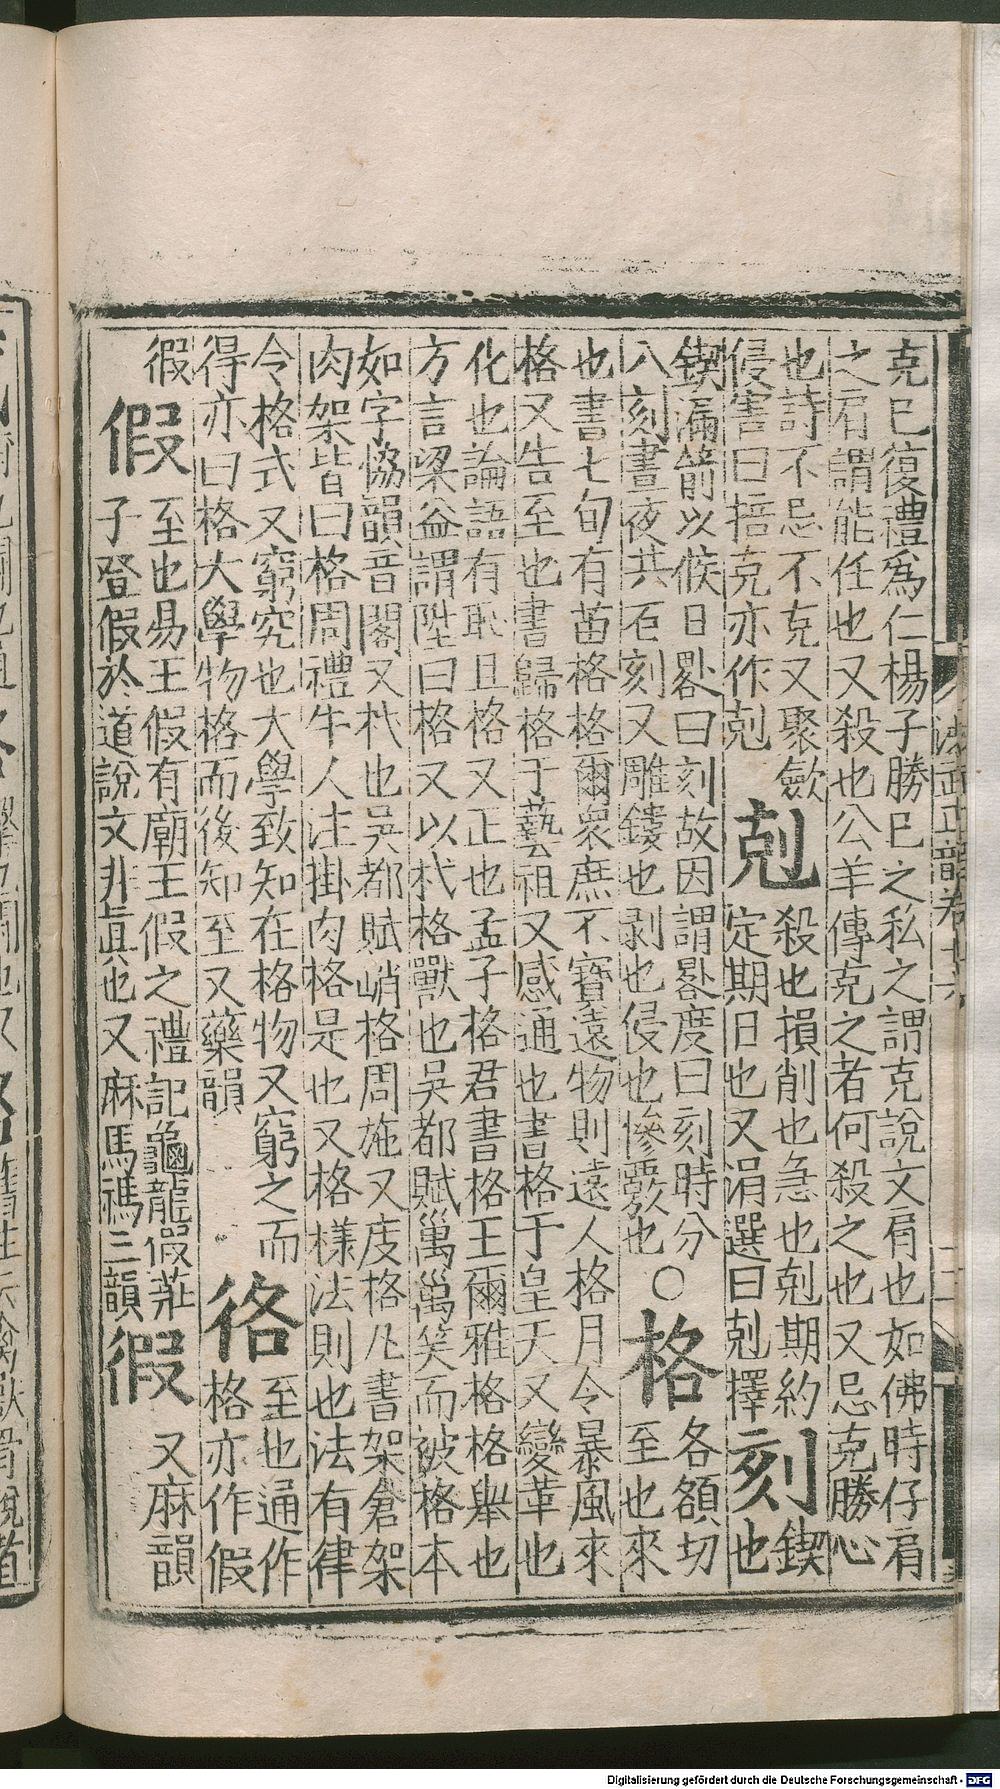 洪武正韻卷十六
克已復禮爲仁楊子勝已之私之謂克說文肩也如佛時仔肩
之肩謂能任也又殺也公羊傳克之者何殺之也又忌克勝心
也詩不忌不克又聚歛
侵害曰掊克亦作剋
剋
殺也損削也急也剋期約
定期日也又涓選日剋擇
刻
鍥
也
鍥漏箭以候日晷曰刻故因謂晷度曰刻時分
八刻晝夜共百刻又雕鏤也剥也侵也慘覈也
○格
各額切
至也來
也書七旬有苗格格爾衆庶不寶遠物則遠人格月令暴風來
格又告至也書歸格于藝祖又感通也書格于皇天又變革也
化也論語有恥且格又正也孟子格君書格王爾雅格格舉也
方言梁益謂陞曰格又以杙格獸也吳都賦萬萬笑而被格本
如字恊韻音閣又杙也吳都賦峭格周施又庋格凡書架倉架
肉架皆曰格周禮牛人注掛肉格是也又格様法則也法有律
令格式又窮究也大學致知在格物又窮之而
得亦曰格大學物格而後知至又藥韻
佫
至也通作
格亦作假
徦
假
至也易王假有廟王假之禮記龜龍假莊
子登假於道說文非眞也又麻馬禡三韻
徦
又麻韻
Digitalisierung gefördert durch die Deutsche Forschungsgemeinschaft - DFG